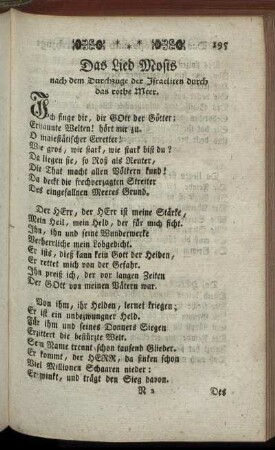 195
Das Lied Mosis
nach dem Durchzuge der Israeliten durch
das rothe Meer.
Ich singe dir, dir GOtt der Götter:
Erstaunte Welten! hört mir zu.
O majestätischer Erretter!
Wie gros, wie stark, wie stark bist du?
Da liegen sie, so Roß als Reuter,
Die That macht allen Völkern kund!
Da deckt die frechverzagten Streiter
Des eingefallnen Meeres Grund.
Der HErr, der HErr ist meine Stärke,
Mein Heil, mein Held, der für mich ficht.
Ihn, ihn und seine Wunderwerke
Verherrliche mein Lobgedicht.
Er ists, dieß kann kein Gott der Heiden,
Er rettet mich von der Gefahr.
Ihn preiß ich, der vor langen Zeiten
Der GOtt von meinen Vätern war.
Von ihm, ihr Helden, lernet kriegen;
Er ist ein unbezwungner Held.
Für ihm und seines Donners Siegen
Erzittert die bestürzte Welt.
Sein Name trennt schon tausend Glieder.
Er kommt, der HERR, da sinken schon
Viel Millionen Schaaren nieder:
Er winkt, und trägt den Sieg davon.
N 2 Des